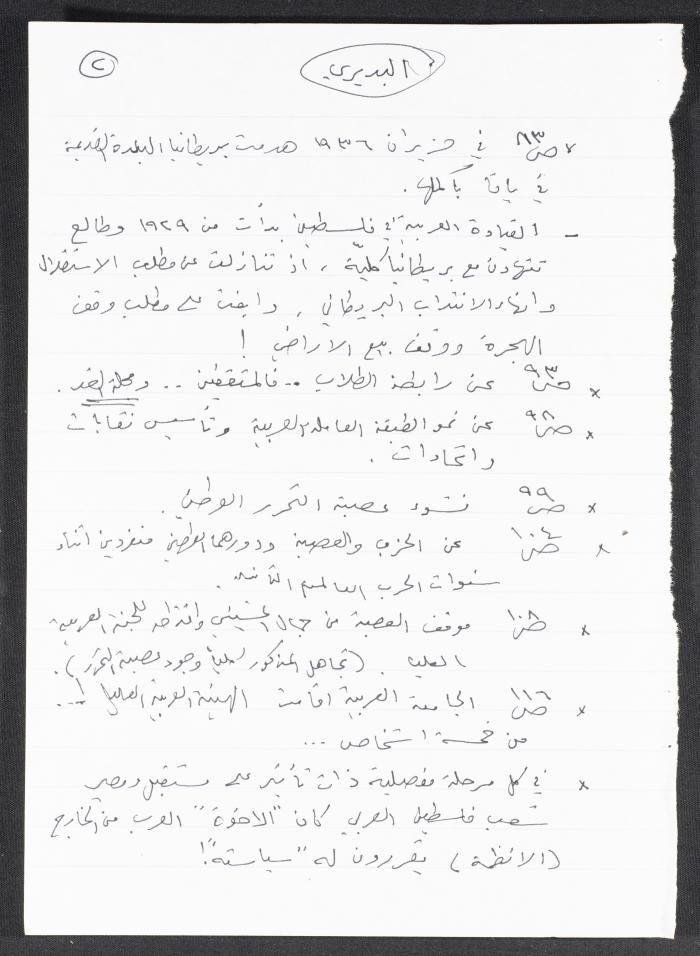 البديري
٢
× ص٨٣ في حزيران ١٩٣٦ هدمت بريطانيا البلدة القديمة
في يافا بأكملها.
- القيادة العربية في فلسطين بدأت من ١٩٢٩ وطالع
تتهاون مع بريطانيا كلية، اذ تنازلت عن مطلب الاستقلال
وانهاء الانتداب البريطاني، وابقت على مطلب وقف
الهجرة ووقف بيع الاراضي!
× ص٩٣ عن رابطة الطلاب .. فالمثقفين .. ومجلة الغد.
× ص٩٨ عن نمو الطبقة العاملة العربية وتأسيس نقابات
واتحادات.
× ص٩٩ نشوء عصبة التحرر الوطني.
× ص١٠٤ عن الحزب والعصبة ودورهما الوطني منفردين اثناء
سنوات الحرب العالمية الثانية.
× ص١٠٨ موقف العصبة من جمال الحسيني للجنة العربية
العليا. (تجاهل المذكور وجود عصبة التحرر).
× ص١١٦ الجامعة العربية اقامت الهيئة العربية العليا !...
من خمسة اشخاص ...
× في كل مرحلة مفصلية ذات تأثير على مستقبل ومصير
شعب فلسطين العربي كان "الاخوة" العرب من الخارج
(الانظمة) يقررون له "سياسته"!